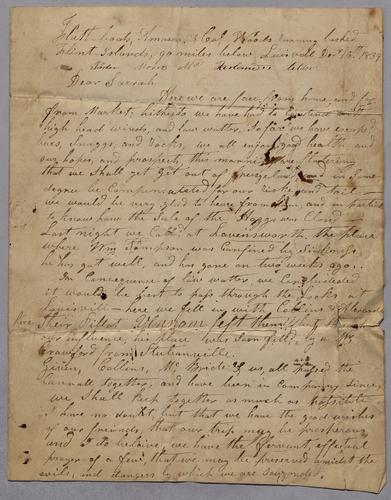 Flatt boats, & Capt Woods running lashed
Flint Islands, 90 miles below Luisvill Decr 15th 1839
letter
Dear Sarrah
Here we are far from home, and far
from Market; hitherto we have had to contend with
high head winds, and law water, So far we have escap'd
Snaggs, and Rocks, we all enjoy good health and
our hopes, and prospects, this morning are flattering
that we Shall get out of and in Some
degree be Compensated for our Risks and toil
we would be very glad to hear from and in particu
to know have the Sale of the Hoggs
Last night we Call'd at Lavensworth the place
where Wm Sampson was Confined by Sickness,
he has got well, and has gone on two weeks ago.
In Consequence of law water we Concluded
it would be best to pass through the Locks at
Luisvill — here we fell in with Collins &
Their Pillott left them
our influence, his place was Soon fill'd by a Mr
Crawford from Stubanvelle.
Given, Collins, McBride & us, all passed the
Cannall together, and have been in Company Since,
we Shall keep together as much as possible
I have no doubt but that we have the good wishes
of our freinds, that our trip may be prosperous
and I do beleive, we have the fervant, effectual
prayer of a few, that we may be preserved amidst the
evils, and dangers by which we are Surrounded.